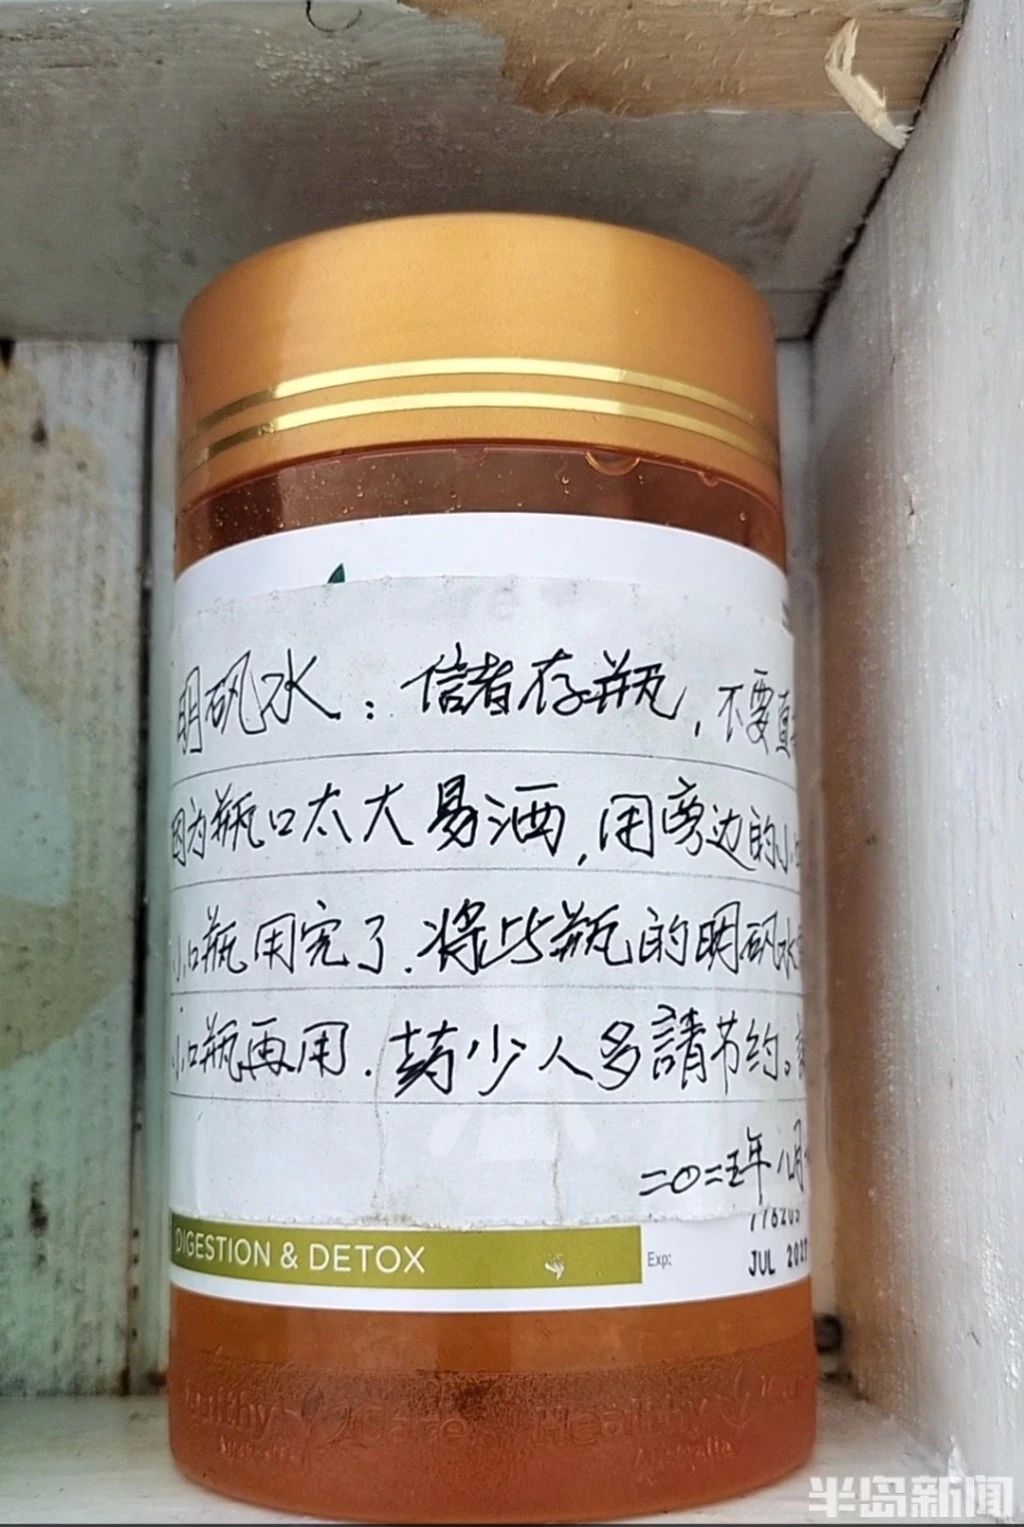 明矾水：信者存瓶，不要直
因为瓶口太大易洒，用旁边的小
小口瓶用完了.将此瓶的明矾水
小口瓶再用.药少人多請节约。
二〇二五年八月
776205
DIGESTION & DETOX
Exp:
JUL 2027
Healthy Care Healthy
Australia Australia
半岛新闻